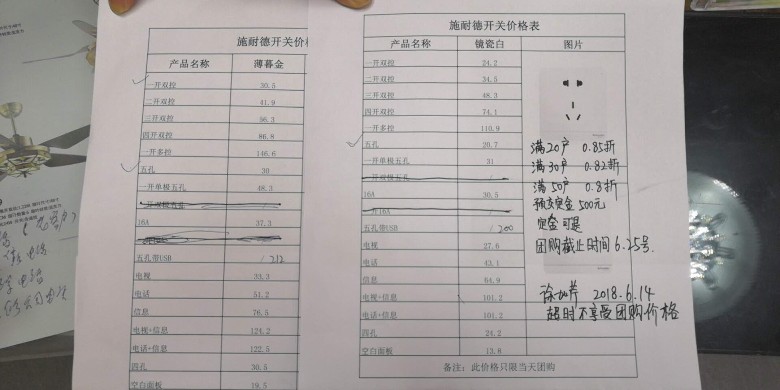 施耐德开关价
产品名称 薄暮金
一开双控 30.5
二开双控 41.9
三开双控 56.3
四开双控 86.8
一开多控 146.6
五孔 30
一开单极五孔 48.3
16A 37.3
五孔带USB 212
电视 33.3
电话 51.2
信息 76.5
电视+信息 124.2
电话+信息 122.5
四孔 30.5
空白面板 19.5
施耐德开关价格表
产品名称 镜瓷白 图片
一开双控 24.2
二开双控 34.5
三开双控 48.3
四开双控 74.1
一开多控 110.9
五孔 20.7
一开单极五孔 31
一开双极五孔
16A 30.5
一开16A
五孔带USB 200
电视 27.6
电话 43.1
信息 64.9
电视+信息 101.2
电话+信息 101.2
四孔 24.2
空白面板 13.8
备注：此价格只限当天团购
满20户 0.85折
满30户 0.82折
满50户 0.8折
预交定金500元
定金可退
团购截止时间6.25号
2018.6.14
超时不享受团购价格